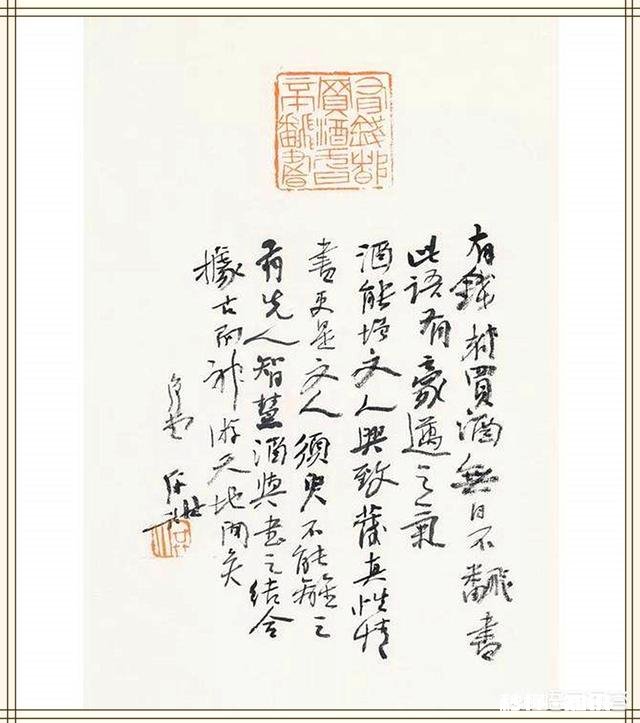 有錢都
買酒無日
不翻書
有錢都買酒無日不翻書
此語有豪邁之氣
酒能增文人興致發真性情
書更是文人須臾不能離之
有先人智慧酒與書之結合
據古而神游天地間矣